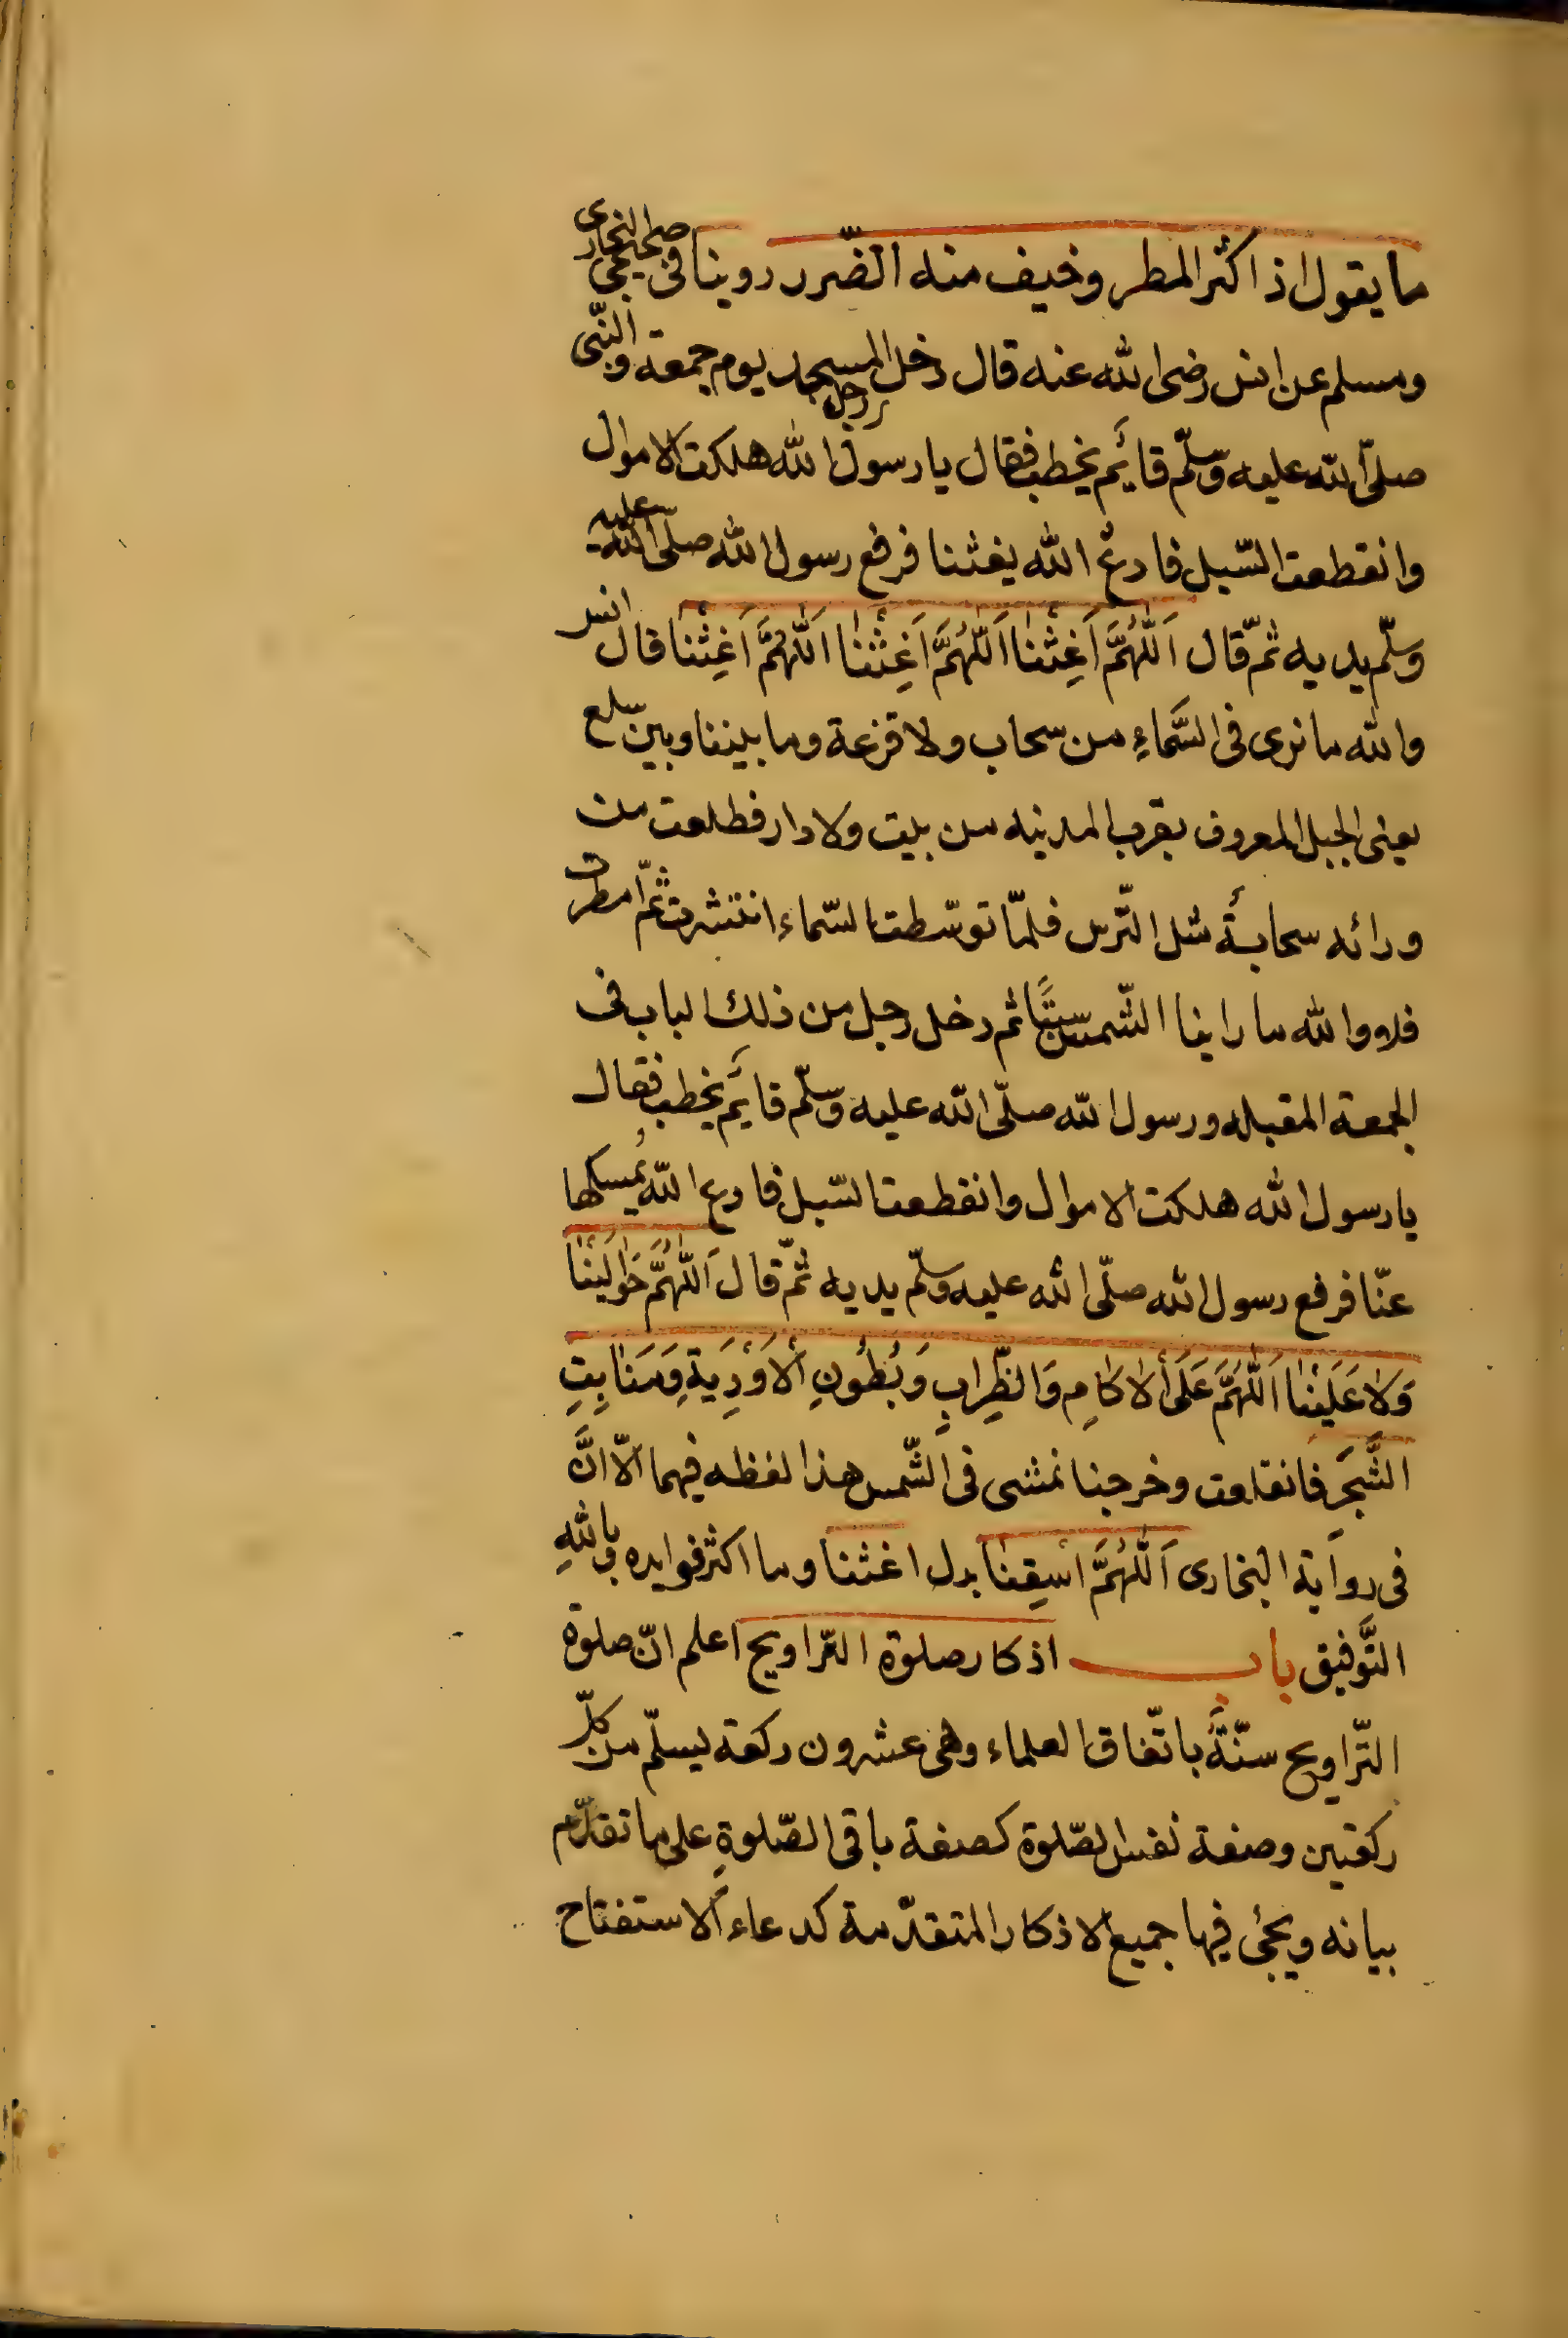 ما يقول اذ اكثر المطر وخيف منه الضّرر روينا فى صحيحى البخارى
ومسلم عن انس رضى الله عنه قال دخل رجل المسجد يوم جمعة والنّبى
صلّى الله عليه وسلّم قائم يخطب فقال يا رسول الله هلكت الاموال
وانقطعت السّبل فادع الله يغثنا فرفع رسول الله صلّى الله عليه
وسلّم يديه ثمّ قال اَللّٰهُمَّ اَغِثْنٰا اَللّٰهُمَّ اَغِثْنٰا اَللّٰهُمَّ اَغِثْنٰا قال انس
والله ما نرى فى السَّمٰاءِ من سحاب ولا قزعة وما بيننا وبين سلع
يعنى الجبل المعروف بقرب المدينه من بيت ولا دار فطلعت من
ورائه سحابة مثل التّرس فلمّا توسّطت السّماء انتشرت ثمّ امطرت
فلا والله ما راينا الشّمس ستًّا ثم دخل رجل من ذلك الباب فى
الجمعة المقبله ورسول الله صلّى الله عليه وسلّم قائم يخطب فقال
يا رسول الله هلكت الاموال وانقطعت السّبل فادع الله يُمسكها
عنّا فرفع رسول الله صلّى الله عليه وسلّم يديه ثمّ قال اَللّٰهُمَّ حَوٰالَيْنٰا
وَلاٰ عَلَيْنٰا اَللّٰهُمَّ عَلَى الْاٰكٰامِ وَالظِّرٰابِ وَبُطُونِ الْاَوْدِيَةِ وَمَنٰابِتِ
الشَّجَرِ فانقلعت وخرجنا نمشى فى الشّمس هذا لفظه فيهما الّا انّ
فى رواية البخارى اَللّٰهُمَّ اسْقِنٰا بدل اغثنا وما اكثر فوايده وبالله
التَّوفيق باب اذكار صلوة التّراويح اعلم انّ صلوة
التّراويح سنّة باتّفاق العلماء وهى عشرون ركعة يسلّم من كلّ
ركعتين وصفة نفس الصّلوة كصفة باقى الصّلوةِ على ما تقدّم
بيانه ويجئ فيها جميع الاذكار المتقدّمة كدعاء الاستفتاح